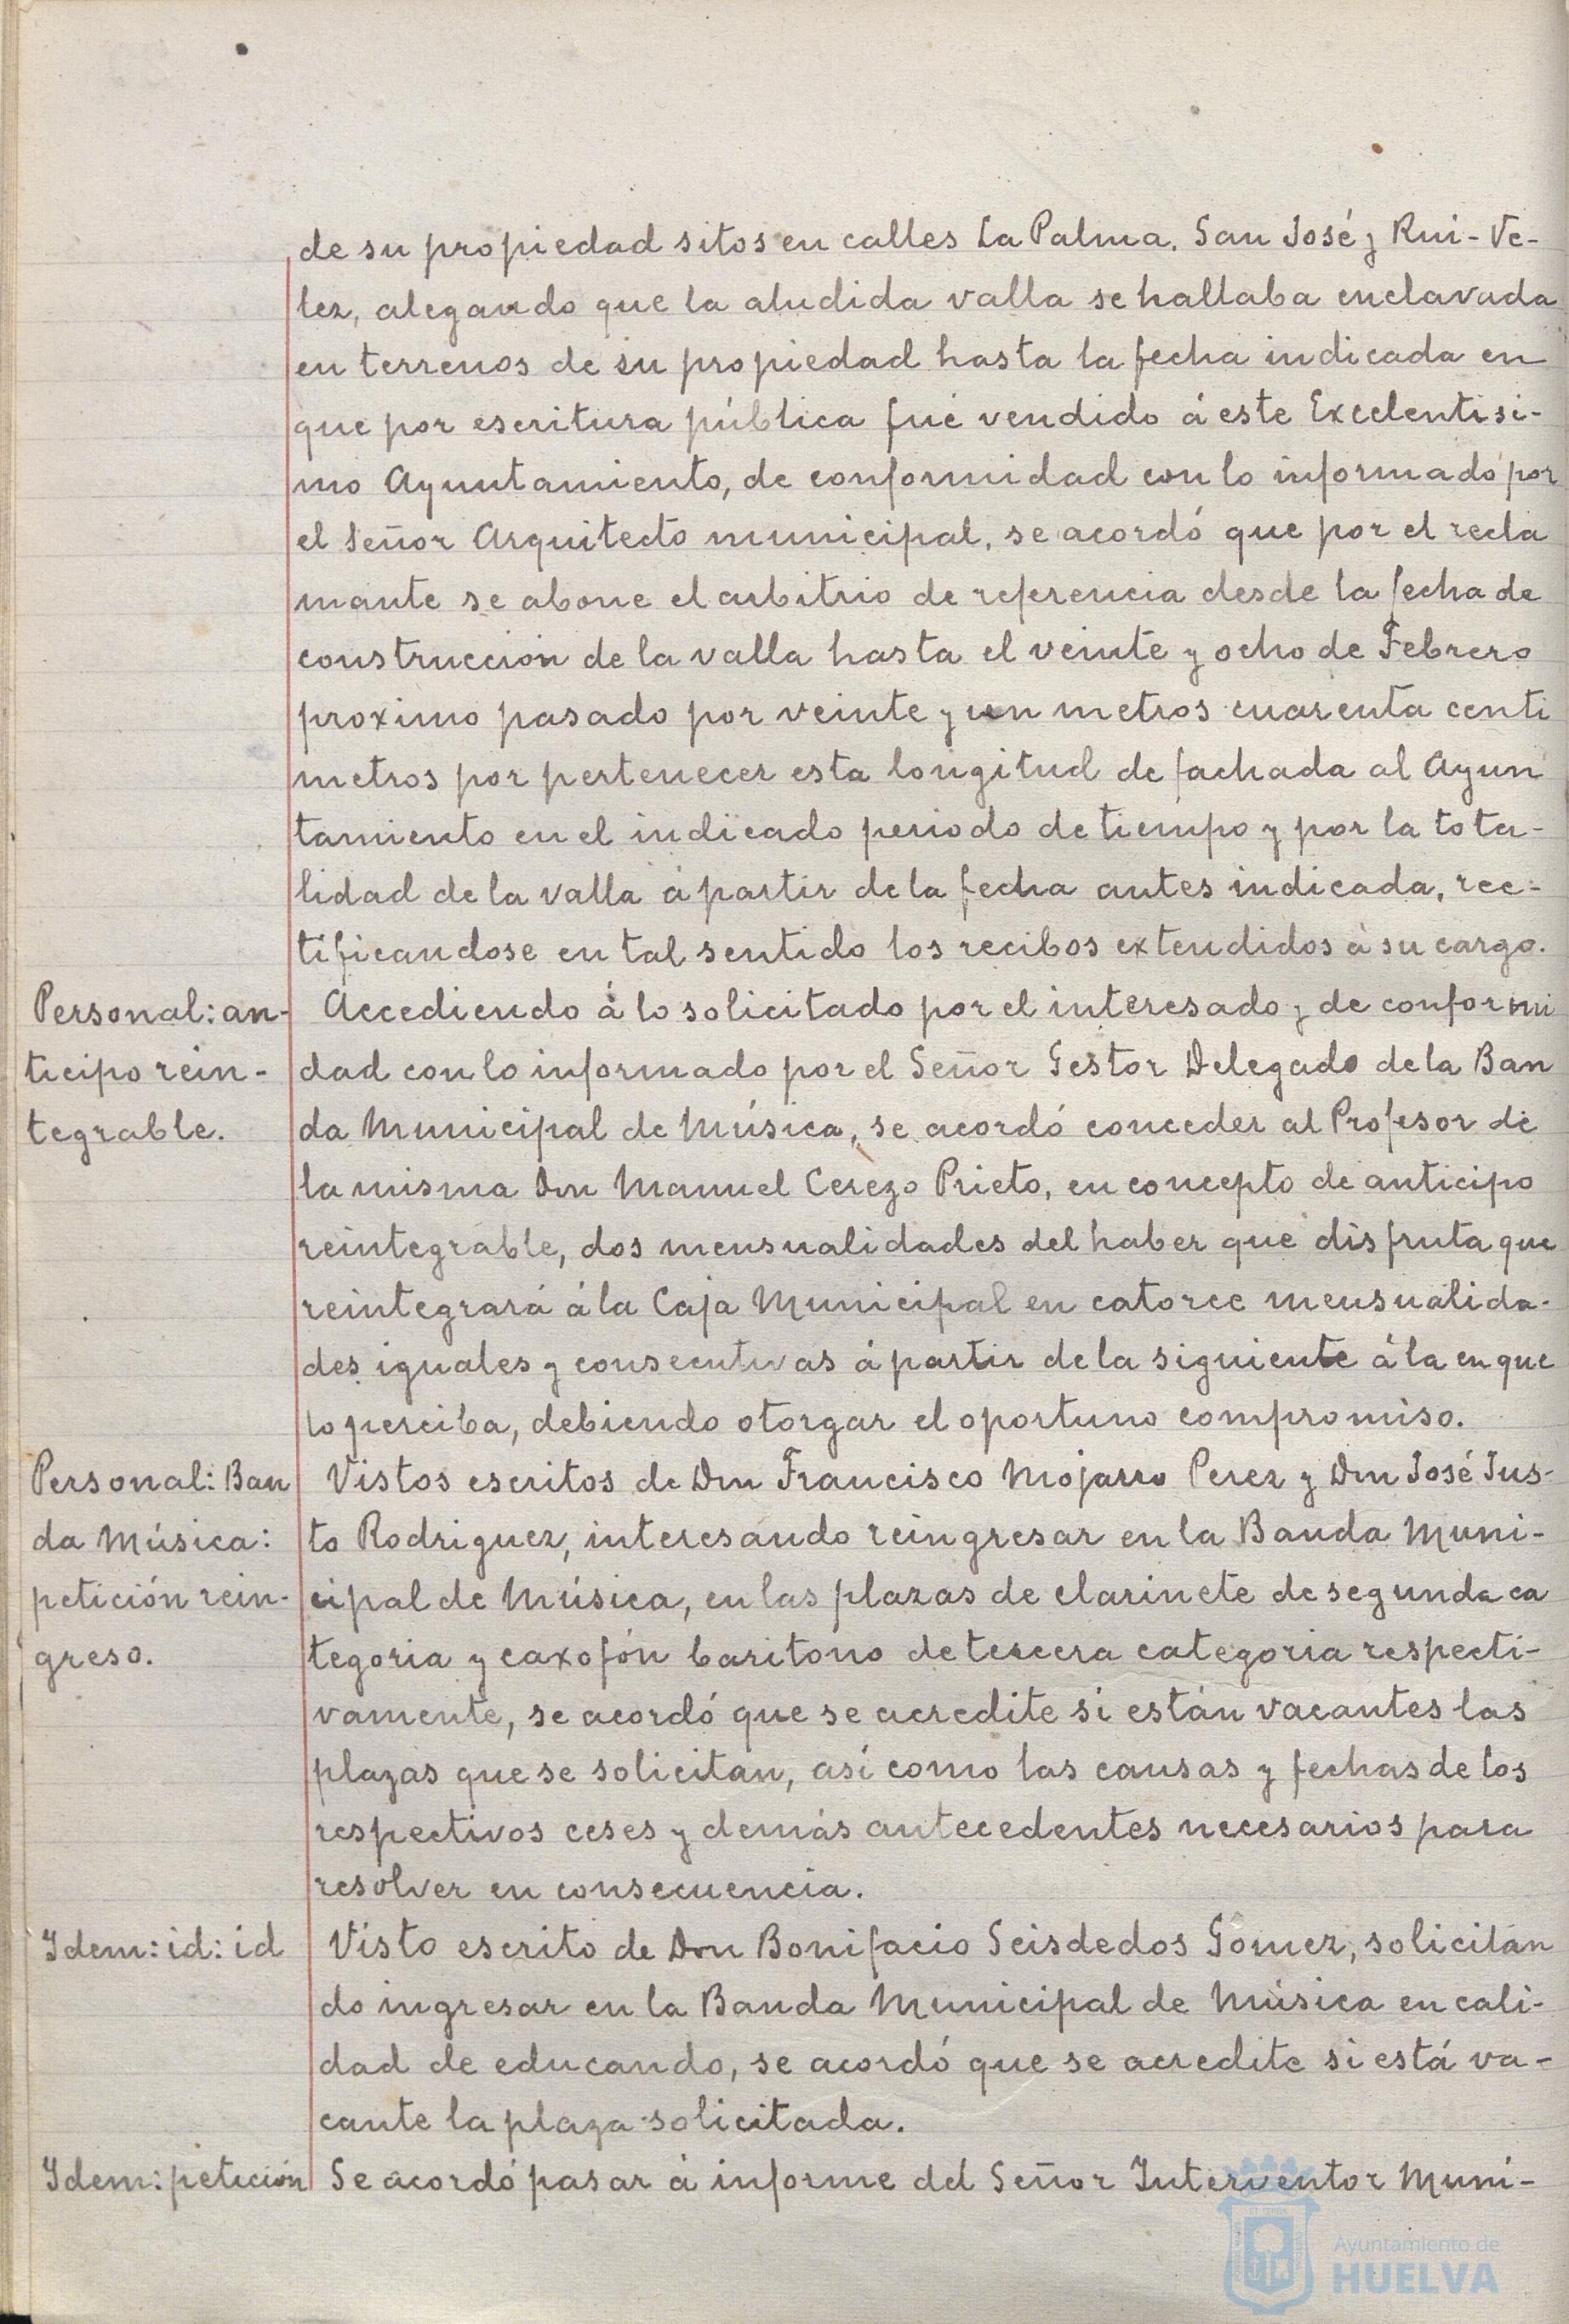 de su propiedad sitos en calles La Palma, San José y Rui-Ve-
lez, alegando que la aludida valla se hallaba enclavada
en terrenos de su propiedad hasta la fecha indicada en
que por escritura pública fué vendido á este Excelentisi-
mo Ayuntamiento, de conformidad con lo informado por
el Señor Arquitecto municipal, se acordó que por el recla
mante se abone el arbitrio de referencia desde la fecha de
construcción de la valla hasta el veinte y ocho de Febrero
proximo pasado por veinte y un metros cuarenta centi
metros por pertenecer esta longitud de fachada al Ayun
tamiento en el indicado periodo de tiempo y por la tota-
lidad de la valla á partir de la fecha antes indicada, rec-
tificandose en tal sentido los recibos extendidos á su cargo.
Personal: an-
ticipo rein-
tegrable.
Accediendo á lo solicitado por el interesado y de conformi
dad con lo informado por el Señor Gestor Delegado de la Ban
da Municipal de Música, se acordó conceder al Profesor de
la misma Don Manuel Cerezo Prieto, en concepto de anticipo
reintegrable, dos mensualidades del haber que disfruta que
reintegrará á la Caja Municipal en catorce mensualida-
des iguales y consecutivas á partir de la siguiente á la en que
lo perciba, debiendo otorgar el oportuno compromiso.
Personal: Ban
da Música:
petición rein-
greso.
Vistos escritos de Don Francisco Mojarro Perez y Don José Jus-
to Rodriguez, interesando reingresar en la Banda Muni-
cipal de Música, en las plazas de clarinete de segunda ca
tegoria y caxofón baritono de tercera categoria respecti-
vamente, se acordó que se acredite si están vacantes las
plazas que se solicitan, así como las causas y fechas de los
respectivos ceses y demás antecedentes necesarios para
resolver en consecuencia.
Idem: id: id
Visto escrito de Don Bonifacio Seisdedos Gómez, solicitan
do ingresar en la Banda Municipal de Música en cali-
dad de educando, se acordó que se acredite si está va-
cante la plaza solicitada.
Idem: petición
Se acordó pasar á informe del Señor Interventor Muni-
Ayuntamiento de
HUELVA